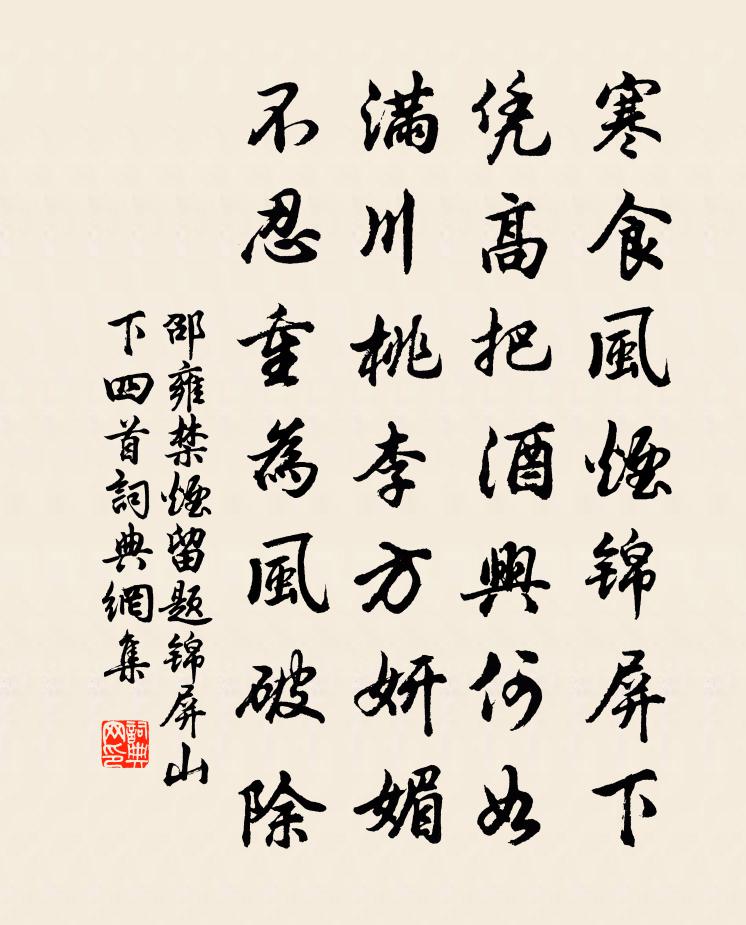 寒食風煙锦屏下
凭高把酒興何如
满川桃李方妍媚
不忍重為風破除
邵雍禁煙留題锦屏山
下四首詞典網集
詞典網印